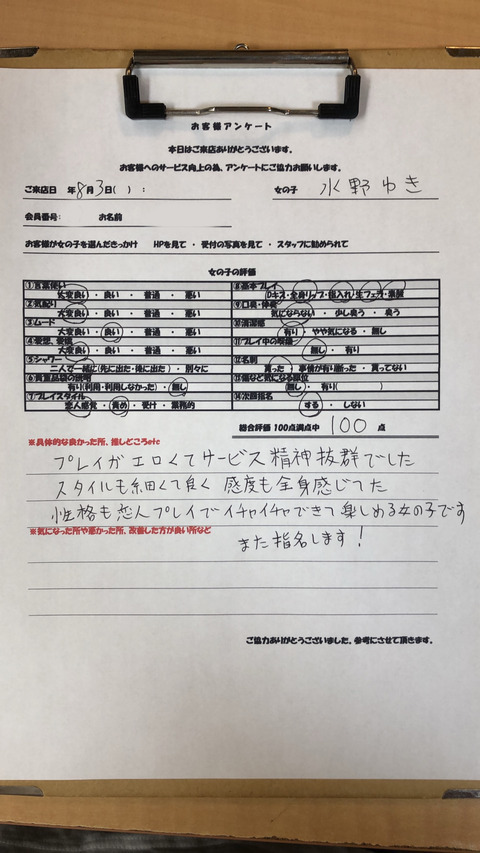 お客様アンケート
本日はご来店ありがとうございます。
お客様へのサービス向上の為、アンケートにご協力お願いします。
ご来店日 年8月3日( ) : 女の子 水野ゆき
会員番号: お名前
お客様が女の子を選んだきっかけ HPを見て ・ 受付の写真を見て ・ スタッフに勧められて
女の子の評価
①言葉使い
大変良い ・ 良い ・ 普通 ・ 悪い
②気配り
大変良い ・ 良い ・ 普通 ・ 悪い
③ムード
大変良い ・ 良い ・ 普通 ・ 悪い
④愛想、愛嬌
大変良い ・ 良い ・ 普通 ・ 悪い
⑤シャワー
二人で一緒に(先に出た・後に出た) ・ 別々に
⑥貴重品袋の説明
有り(利用・利用しなかった) ・ 無し
⑦プレイスタイル
恋人感覚 ・ 責め ・ 受け ・ 業務的
⑧基本プレイ
Dキス・全身リップ・指入れ・生フェラ・素股
⑨口臭・体臭
気にならない ・ 少し臭う ・ 臭う
⑩清潔感
有り ・ やや気になる ・ 無し
⑪プレイ中の
無し ・ 有り
⑫名刺
貰った ・ 事情が有り断った ・ 貰ってない
⑬傷など気になる部位
無し ・ 有り( )
⑭次回指名
する ・ しない
総合評価 100点満点中 100 点
※具体的な良かった所、推しどころetc
プレイがエロくてサービス精神抜群でした
スタイルも細くて良く 感度も全身感じてた
性格も恋人プレイでイチャイチャできて楽しめる女の子です
※気になった所や悪かった所、改善した方が良い所など
また指名します!
ご協力ありがとうございました。参考にさせて頂きます。